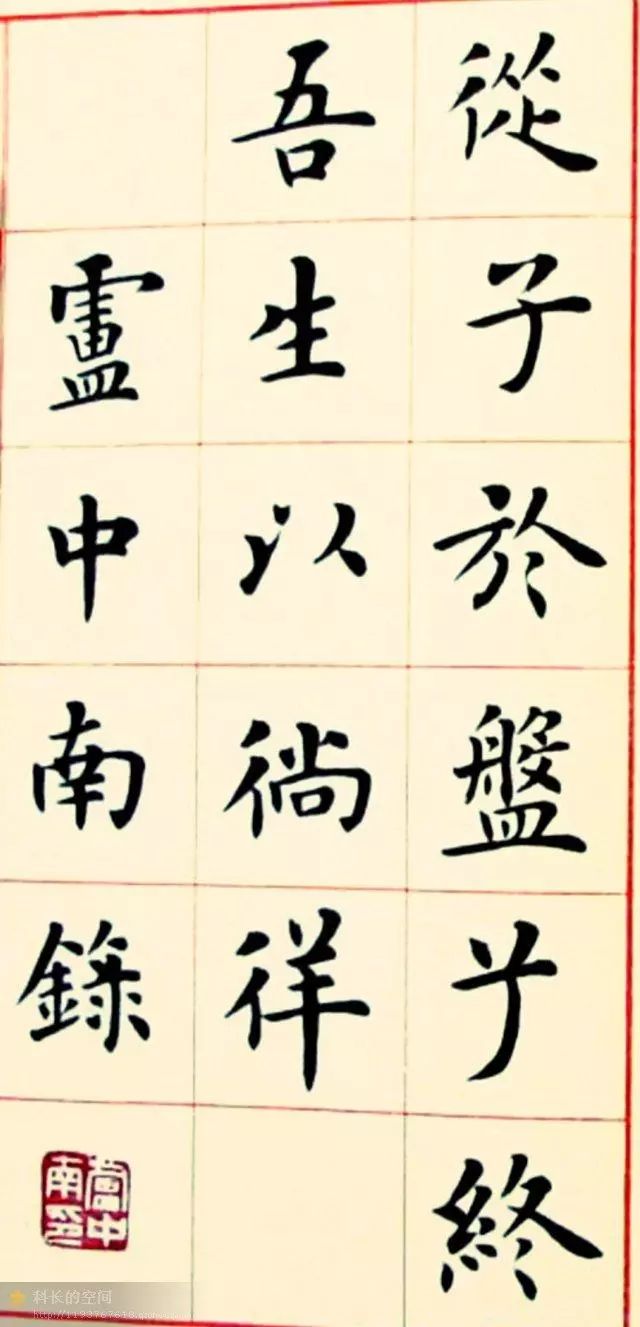 從子於盤兮終
吾生以徜徉
盧中南錄
盧中南印
科长的空间
http://1133767618.qzone